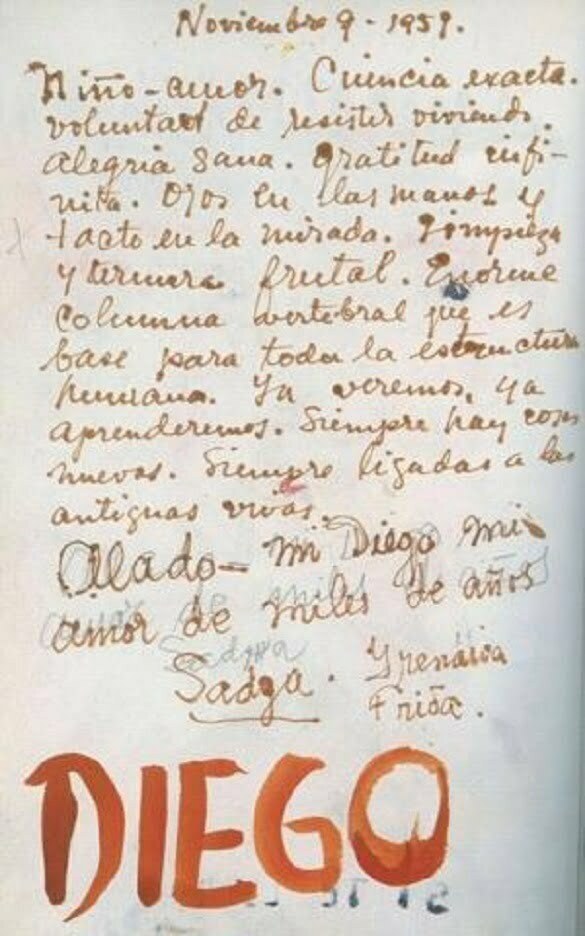 Noviembre 9 - 1951.
Niño-amor. Ciencia exacta.
voluntad de resistir viviendo.
alegria sana. gratitud infi-
nita. Ojos en las manos y
tacto en la mirada. Limpieza
y ternura frutal. Enorme
columna vertebral que es
base para toda la estructura
humana. Ya veremos, ya
aprenderemos. Siempre hay cosas
nuevas. Siempre ligadas a las
antiguas vivas.
Alado - mi Diego mi
amor de miles de años
Sadga. Yrenáica
Frida.
DIEGO